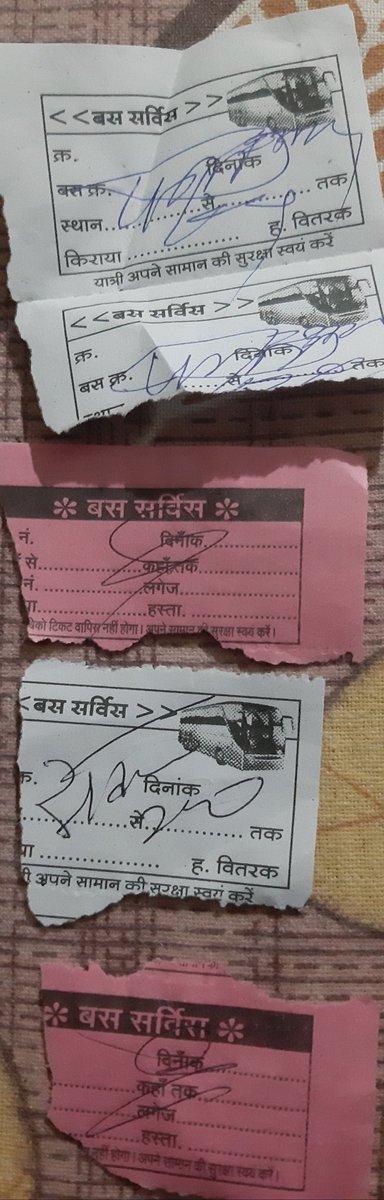 <<बस सर्विस>>
क्र. दिनांक
बस क्र. ............ से ............ तक
स्थान
किराया ............ ह. वितरक
यात्री अपने सामान की सुरक्षा स्वयं करें
<<बस सर्विस>>
क्र. दिनांक
बस क्र. ............ से ............ तक
✲ बस सर्विस ✲
नं. दिनाँक
से ............ कहाँ तक
नं. ............ लगेज
हस्ता.
टिकट वापिस नहीं होगा। अपने सामान की सुरक्षा स्वयं करें।
<<बस सर्विस>>
दिनांक
............ से ............ तक
............ ह. वितरक
अपने सामान की सुरक्षा स्वयं करें
✲ बस सर्विस ✲
दिनाँक
कहाँ तक
लगेज
हस्ता.
नहीं होगा। अपने सामान की सुरक्षा स्वयं करें।